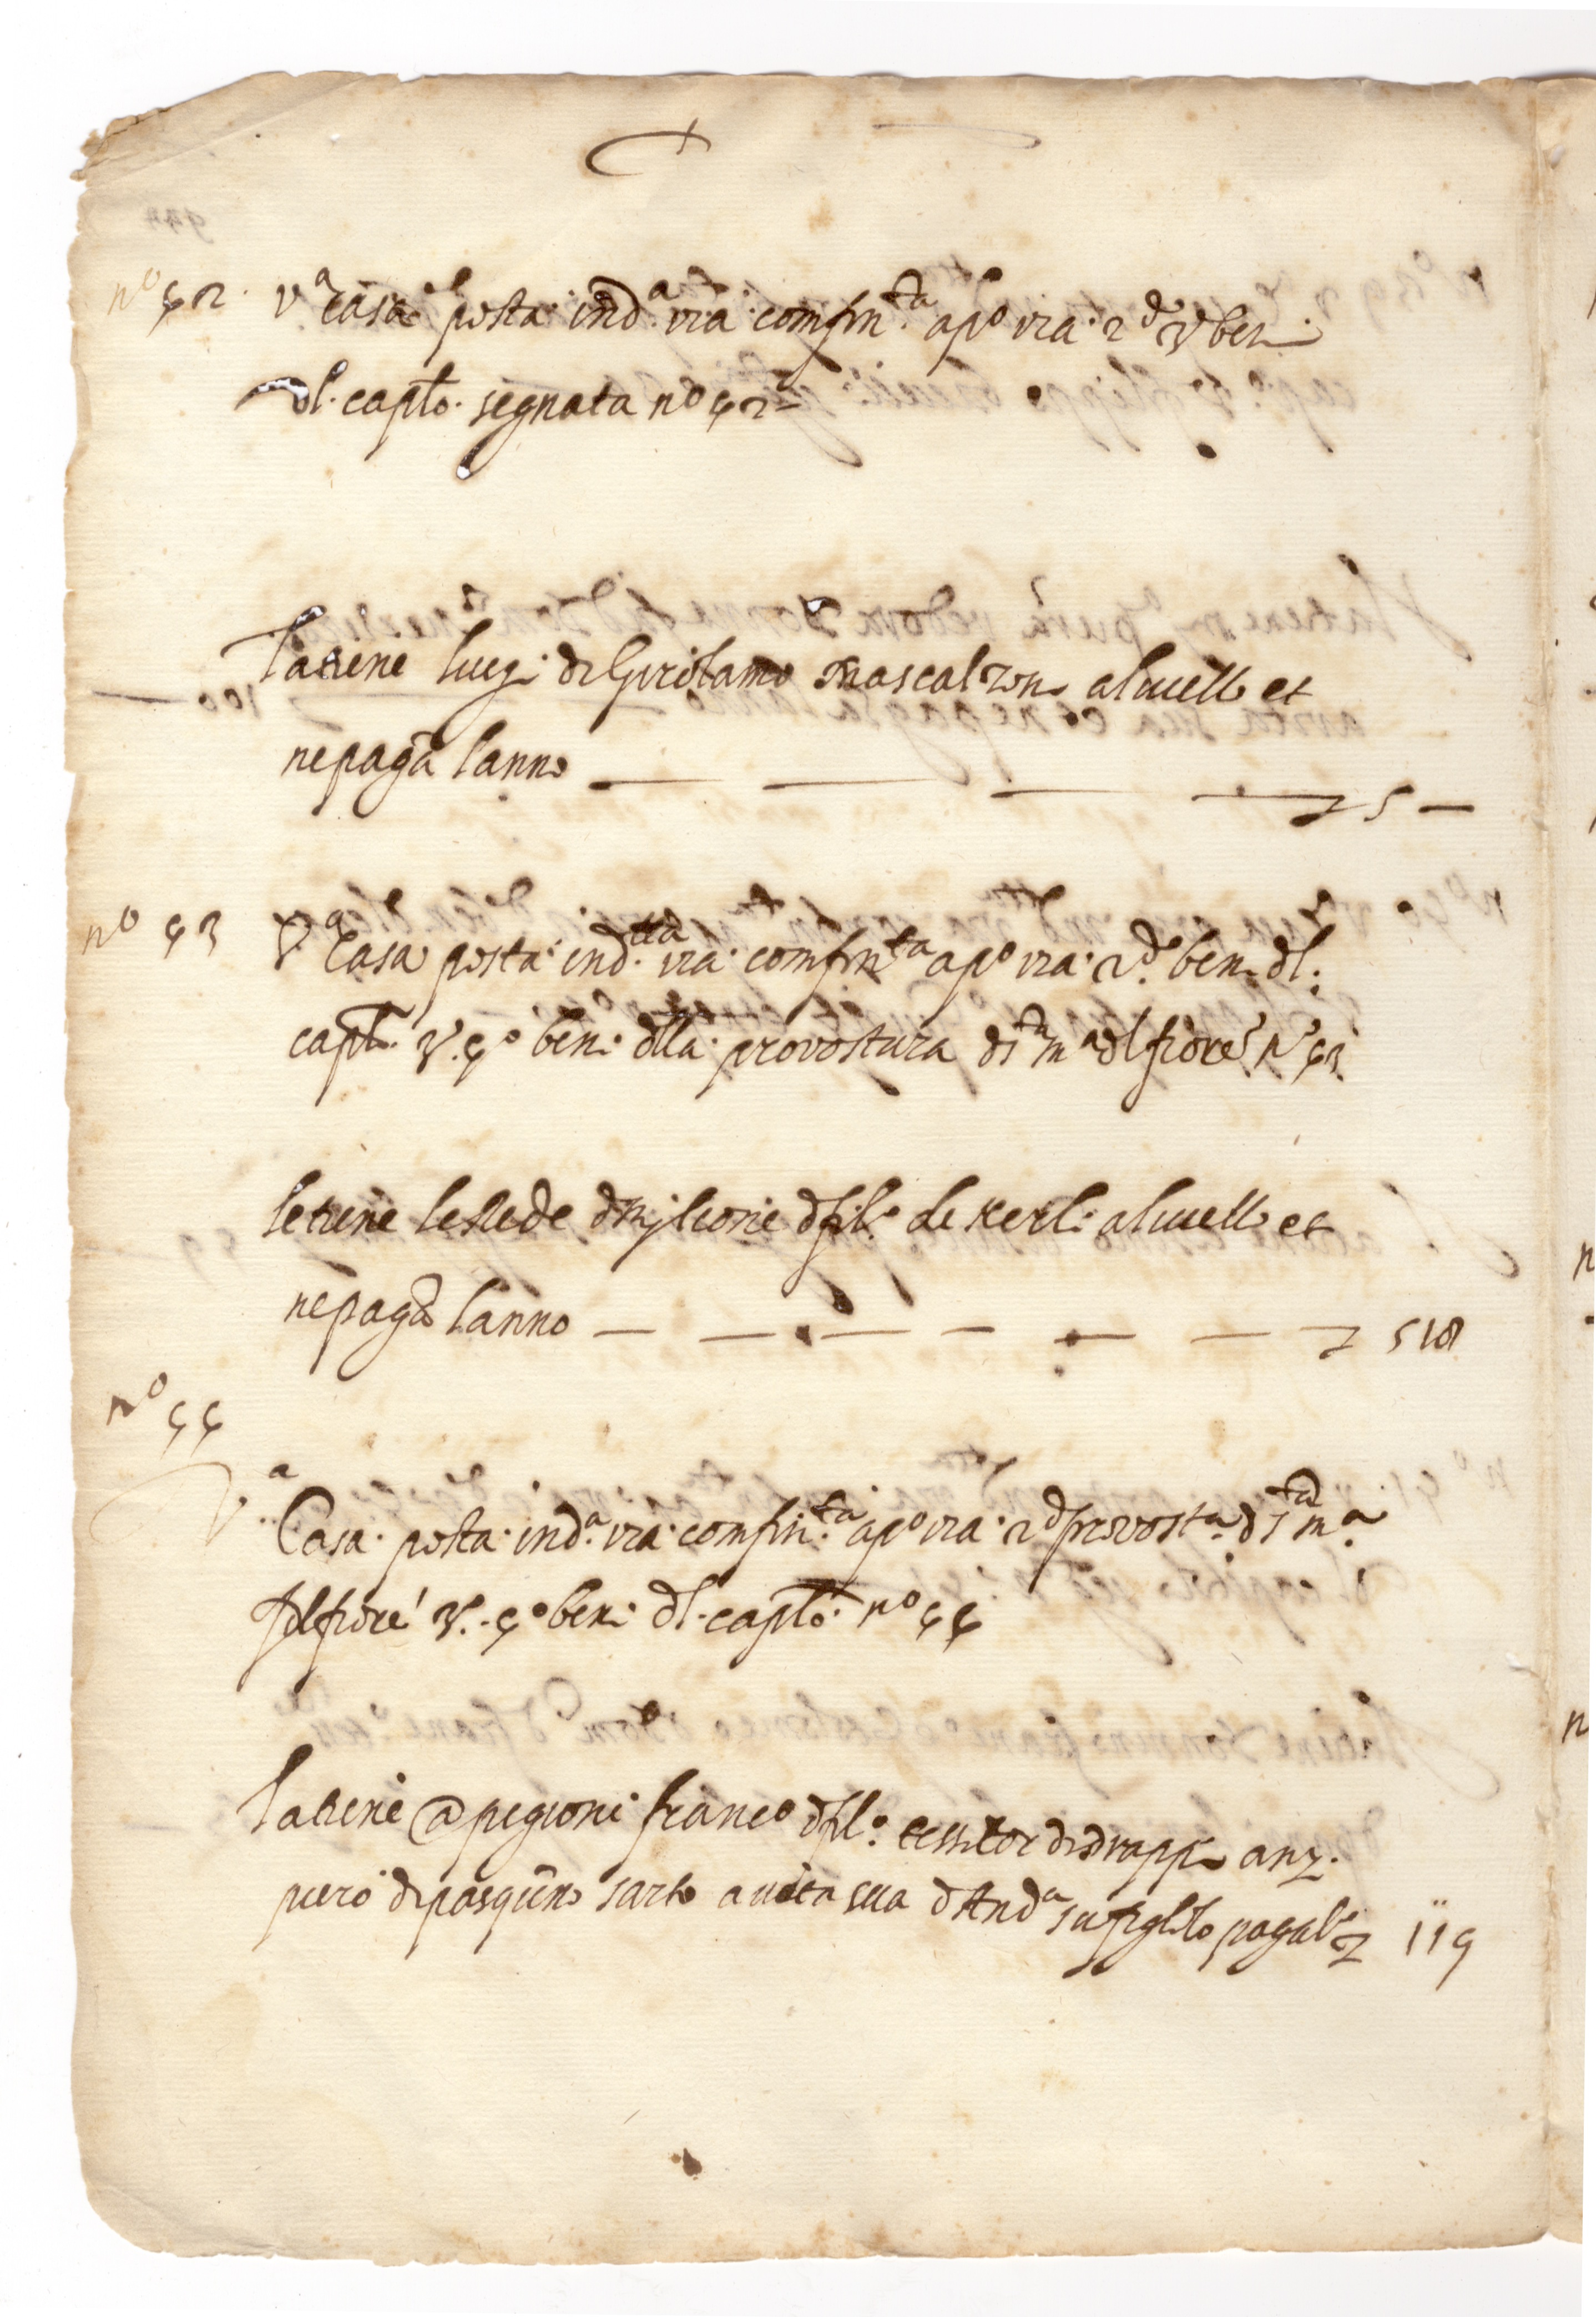 nº 42. Vª casa posta ind.ª via confin.ta apº via 2º 3º ben.
dl. capto. segnata nº 42
la tiene luigi di Girolamo mascalzoni a livello et
ne paga lanno — — — — 7 5 —
nº 43 Vª Casa posta ind.tta via confin.ta apº via 2º ben. dl.
capto. 3º 4º ben. dlla provostura di s.ta mª dl fiore nº 43
le tiene le rede a livello et
ne paga lanno — — — — — — 7 518
nº 44
Vª Casa posta ind.ª via confin.ta apº via 2º provost.ª di s.ta mª
dl fiore 3º 4º ben. dl. capto. nº 44
la tiene @ pigione francº tessitor di drappi anzi
piero di pasquino sarto a vita sua d And.ª su figlilo pagal.e 7 119